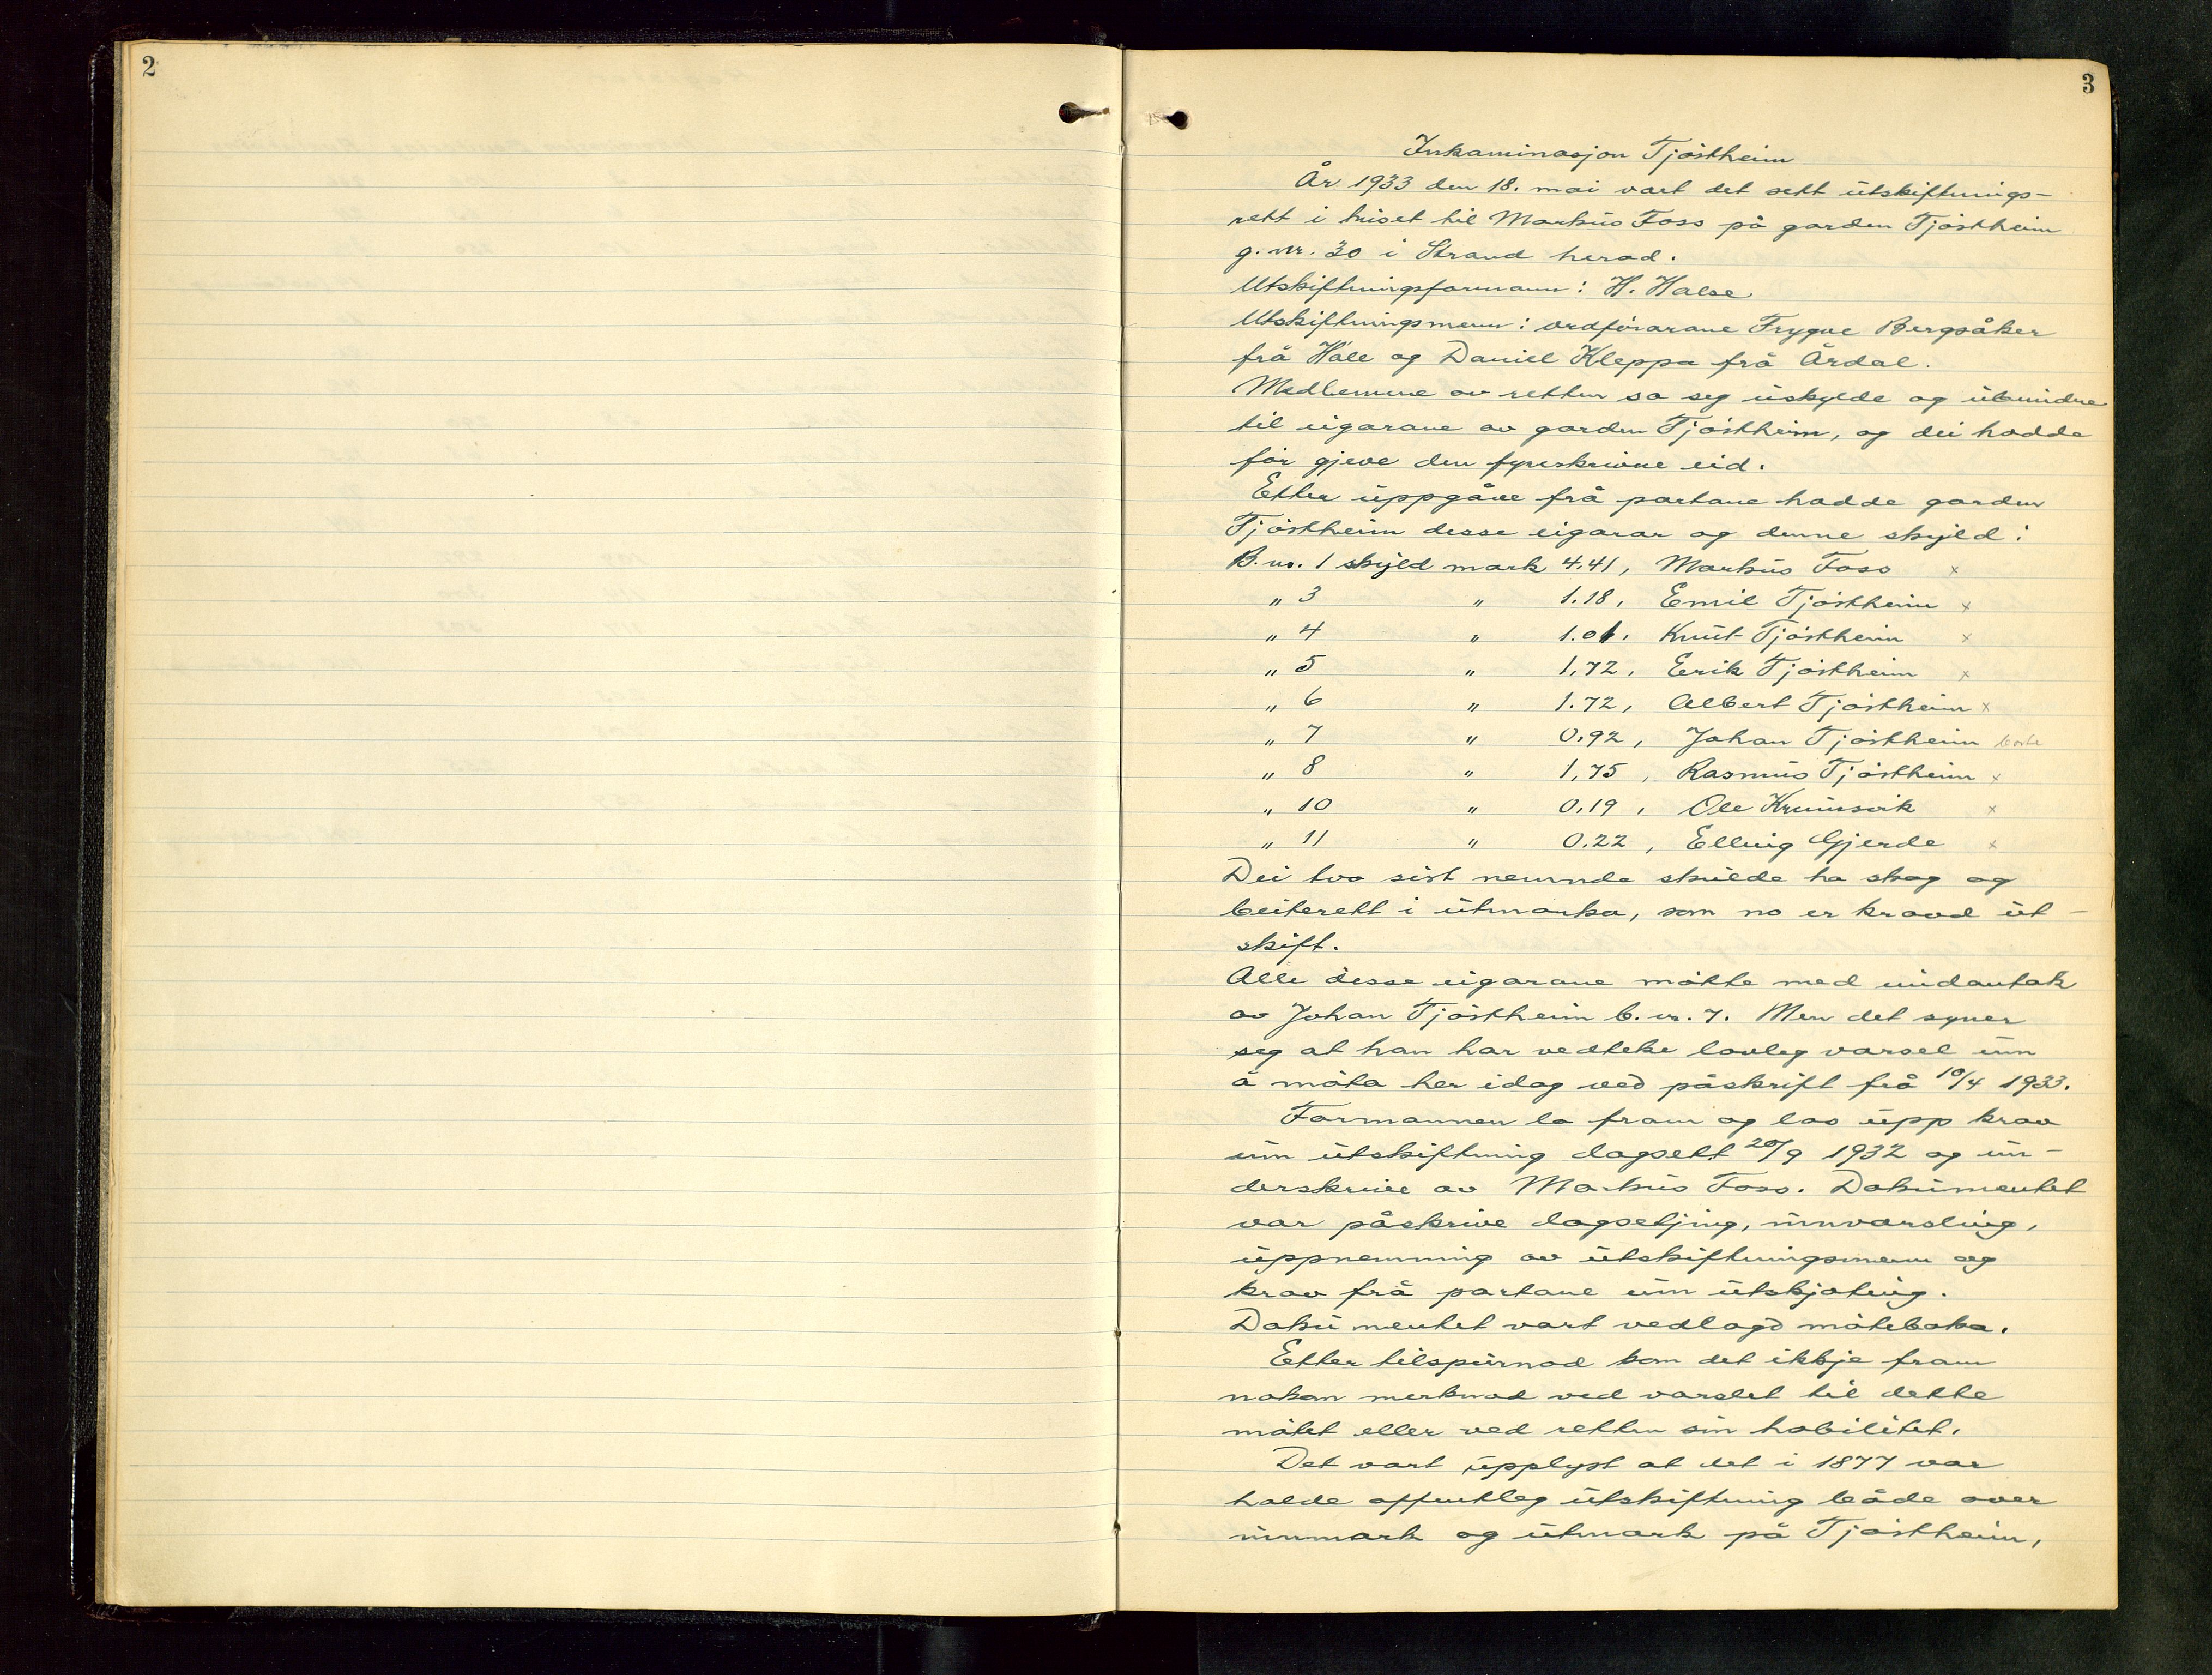 2
3
Inkaminasjon Tjøstheim
År 1933 den 18. mai vart det sett utskiftnings-
rett i huset til Markus Foss på garden Tjøstheim
g.nr. 30 i Strand herad.
Utskiftningsformann: H. Halse
Utskiftningsmenn: ordførarane Trygve Bergsåker
frå Hålе og Daniel Kleppa frå Årdal.
Medlemene av retten sa seg uskylde og ubundne
til eigarane av garden Tjøstheim, og dei hadde
før gjeve den fyreskrivne eid.
Etter uppgåve frå partane hadde garden
Tjøstheim desse eigarar og denne skyld:
B.nr. 1 skyld mark 4.41, Markus Foss x
" 3 " 1.18, Emil Tjøstheim x
" 4 " 1.01, Knut Tjøstheim x
" 5 " 1.72, Erik Tjøstheim x
" 6 " 1.72, Albert Tjøstheim x
" 7 " 0.92, Johan Tjøstheim borte
" 8 " 1,75, Rasmus Tjøstheim x
" 10 " 0.19, Ole Krunsvik x
" 11 " 0.22, Elling Gjerde x
Dei tvo sist nemnde skulde ha skog og
beiterett i utmarka, som no er kravd ut-
skift.
Alle desse eigarane møtte med undantak
av Johan Tjøstheim b.nr. 7. Men det syner
seg at han har vedteke lovleg varsel um
å møta her idag ved påskrift frå 10/4 1933.
Formannen la fram og las upp krav
um utskiftning dagsett 20/9 1932 og un-
derskrive av Markus Foss. Dokumentet
var påskrive dagsetjing, umvarsling,
uppnemning av utskiftningsmenn og
krav frå partane um utskjoting.
Dokumentet vart vedlagd møteboka.
Etter tilspurnad kom det ikkje fram
nokon merknad ved varslet til dette
møtet eller ved retten sin habilitet.
Det vart upplyst at det i 1877 var
halde offentleg utskiftning både over
innmark og utmark på Tjøstheim,